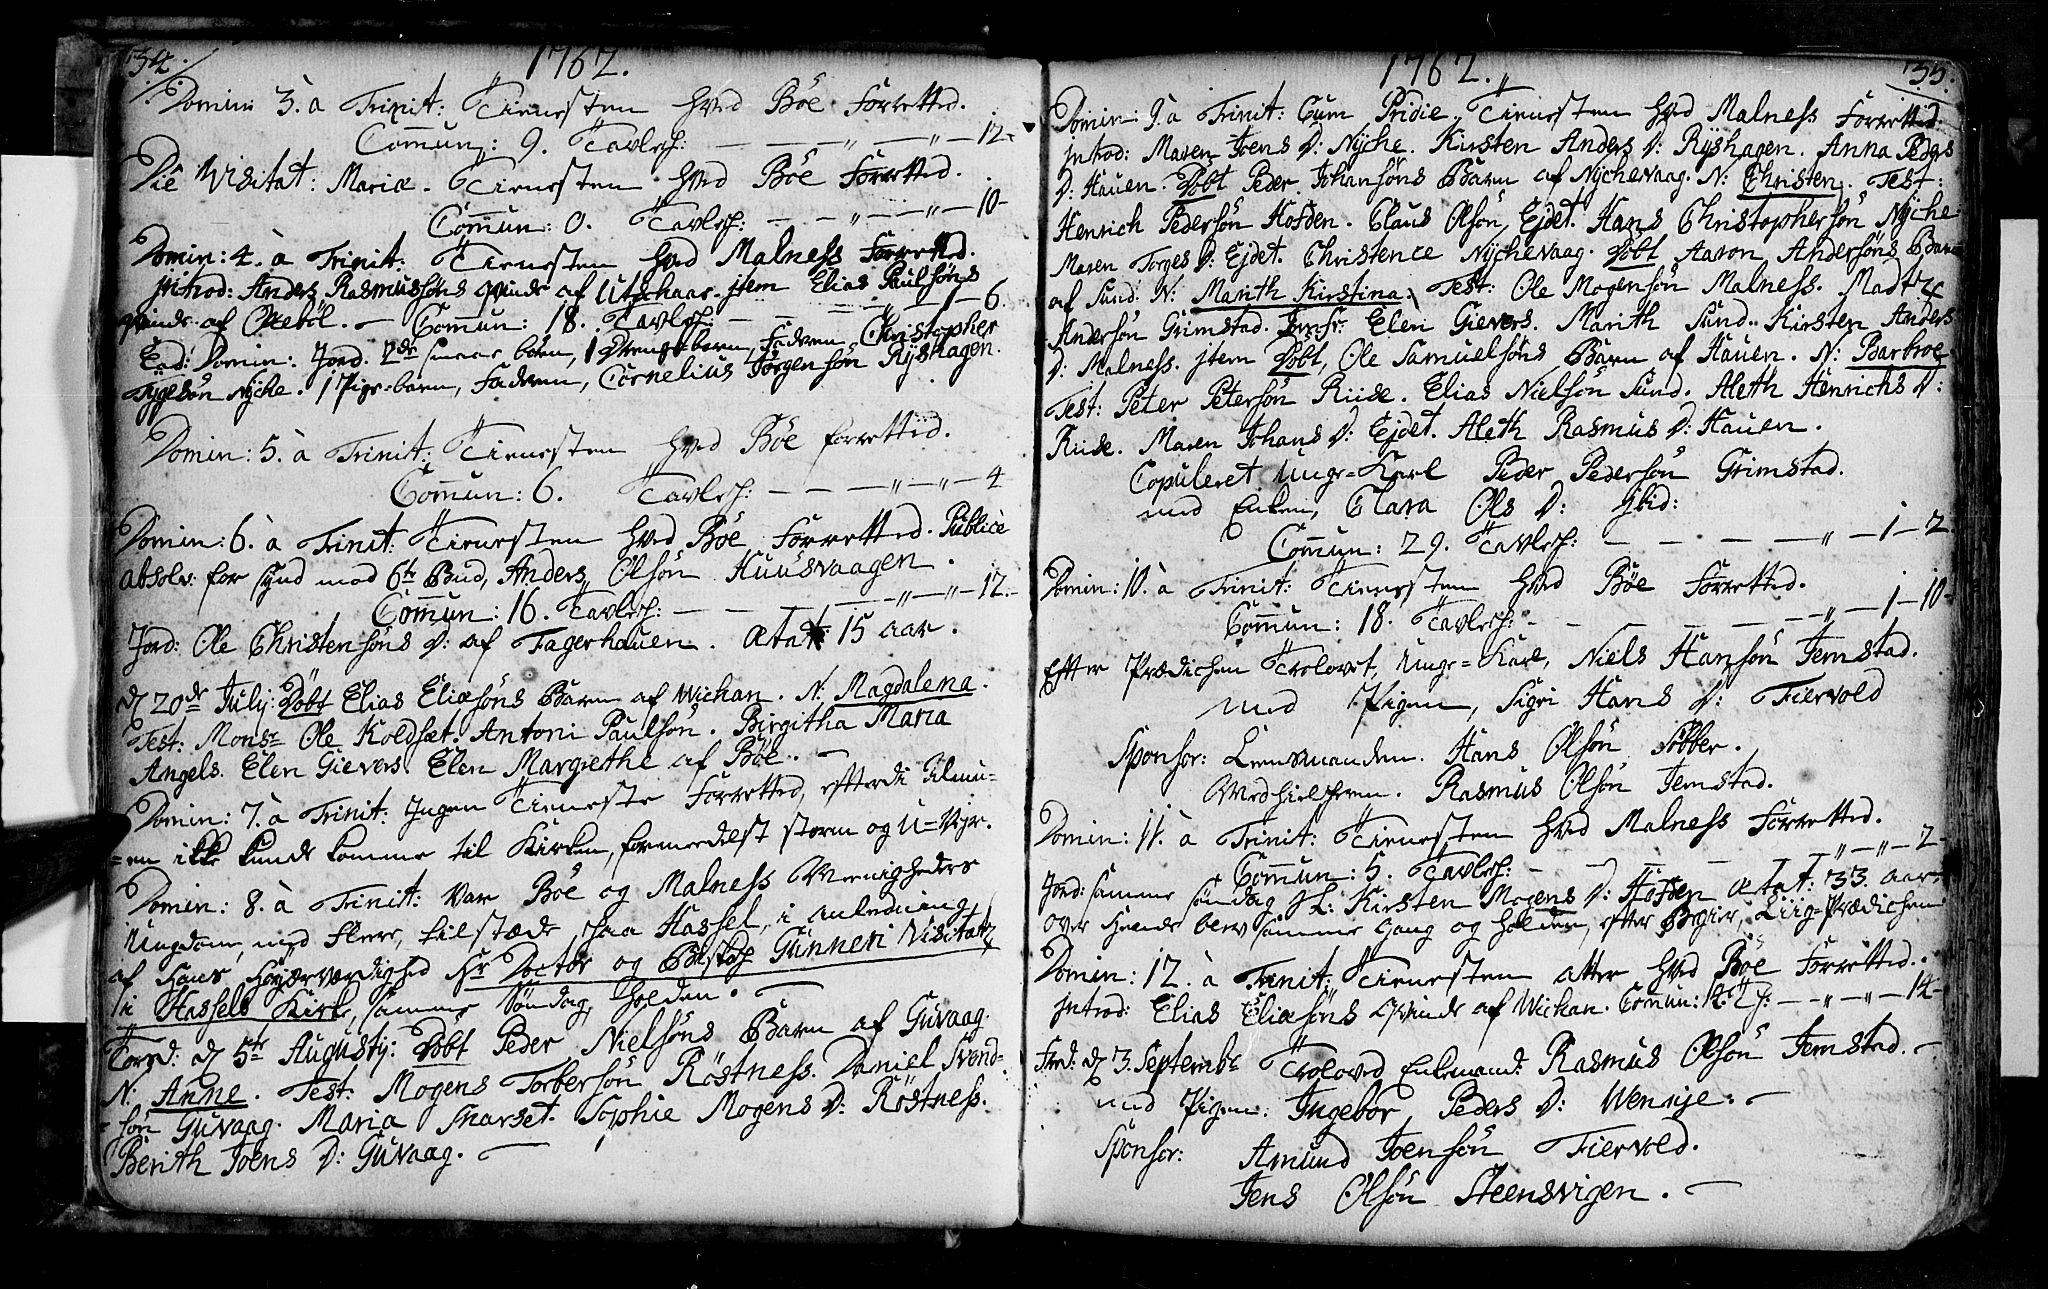 34.
1762.
Domin: 3. à Trinit: Tienesten hved Böe Forretted.
Comun: 9. Tavlesk: — — — „ — „ — 12.
Die Visitat: Mariæ. Tienesten hved Böe Forretted.
Comun: 0. Tavlesk: — — „ — „ — 10 —
Domin: 4. à Trinit: Tienesten hved Malness Forretted.
Introd: Anders Rasmussöns qvinde af Utschaar. Jtem Elias Paulsöns
qvinde af Okeböl. — Comun: 18. Tavlesk: — — — 1 — 6.
Ead: Domin: Jord. 2de smaae börn, 1 Drenge-barn, Faderen Christopher
Tygesön Nyche. 1 Pige-barn, Faderen, Cornelius Jörgensön Ryshagen.
Domin: 5. à Trinit: Tienesten hved Böe forrettid.
Comun: 6. Tavlesk: — — — „ — „ — 4
Domin: 6. à Trinit: Tienesten hved Böe Forretted. Publicè
absolv: for synd mod 6te Bud, Anders Olsön Huusvaagen.
Comun: 16. Tavlesk: — — — „ — „ — 12.
Jord: Ole Christensöns D: af Fagerhauen. Ætat: 15 aar.
d 20de July: Döbt Elias Eliæsöns Barn af Wickan. N: Magdalena.
Test: Monsr Ole Koldsæt. Antoni Paulsön. Birgitha Maria
Angels. Elen Gievers. Elen Margrethe af Böe. —
Domin: 7. à Trinit: Ingen Tieneste Forretted, efterdi Almu=
=en ikke kunde komme til Kirken, formedelst storm og U=Vejr.
Domin: 8. à Trinit: Var Böe og Malness Menigheders
Ungdom, med flere, tilstæde, paa Hassel, i anledning
af Hans Höjærværdighed Hr Doctor og Biskop Gunneri Visitatz
i Hassels Kirke, samme Söndag, holden. —
Torsd: d 5te Augustij: Döbt Peder Nielsöns Barn af Guvaag.
N: Anne. Test: Mogens Torbersön Röstness. Daniel Svend=
=sön Guvaag. Maria Skarset. Sophie Mogens D: Röstness.
Berith Joens D: Guvaag. —
1762.
35.
Domin: 9. à Trinit: Cum Pridie. Tienesten hved Malness Forrettid.
Introd: Maren Joens D: Nyche. Kirsten Anders D: Ryshagen. Anna Peders
D: Hauen. Döbt Peder Johansöns Barn af Nychevaag. N: Christen. Test:
Henrich Pedersön Hofden. Claus Olsön, Ejdet. Hans Christophersön Nyche.
Maren Torges D: Ejdet. Christence Nychevaag. Döbt Aaron Andersöns Barn
af Sund. N: Marith Kirstina. Test: Ole Mogensön Malness. Madtz
Andersön Grimstad. Jomfr: Elen Gievers. Marith Sund. Kirsten Anders
D: Malness. Jtem Döbt, Ole Samuelsöns Barn af Hauen. N: Barbroe
Test: Peter Petersön Riise. Elias Nielsön Sund. Aleth Henrichs D:
Riise. Maren Johans D: Ejdet. Aleth Rasmus D: Hauen.
Copuleret Unge=Karl Peder Pedersön Grimstad.
med Enken, Clara Ols D: Ibid:
Comun: 29. Tavlesk: — — — „ — 1 — 2.
Domin: 10. à Trinit: Tienesten hved Böe Forretted.
Comun: 18. Tavlesk: — — — „ — 1 — 10 —
Efter Prædichen Trolovet, Unge=Karl, Niels Hansön Jemstad.
med Pigen, Sigri Hans D: Fiervold
Sponsor: Lensmanden. Hans Olsön Sobber.
Medhielperen. Rasmus Olsön Jemstad.
Domin: 11. à Trinit: Tienesten hved Malness Forretted.
Comun: 5. Tavlesk: — — — „ — „ — 2 —
Jord: samme Söndag Kirsten Mogens D: Hofden ætat: 33. aar.
over hende blev samme gang og holden, efter Begier, Liig=Prædichen
Domin: 12. à Trinit: Tienesten atter hved Böe Forretted.
Introd: Elias Eliæsöns Qvinde af Wickan. Comun: 12. T: — „ — „ — 14 —
Fred: d 3. Septembr Troloved Enkemand: Rasmus Olsön Jemstad. —
med Pigen: Ingebor Peders D: Wennje. —
Sponsor: Amund Joensön Fiervold.
Jens Olsön Steensvigen. —